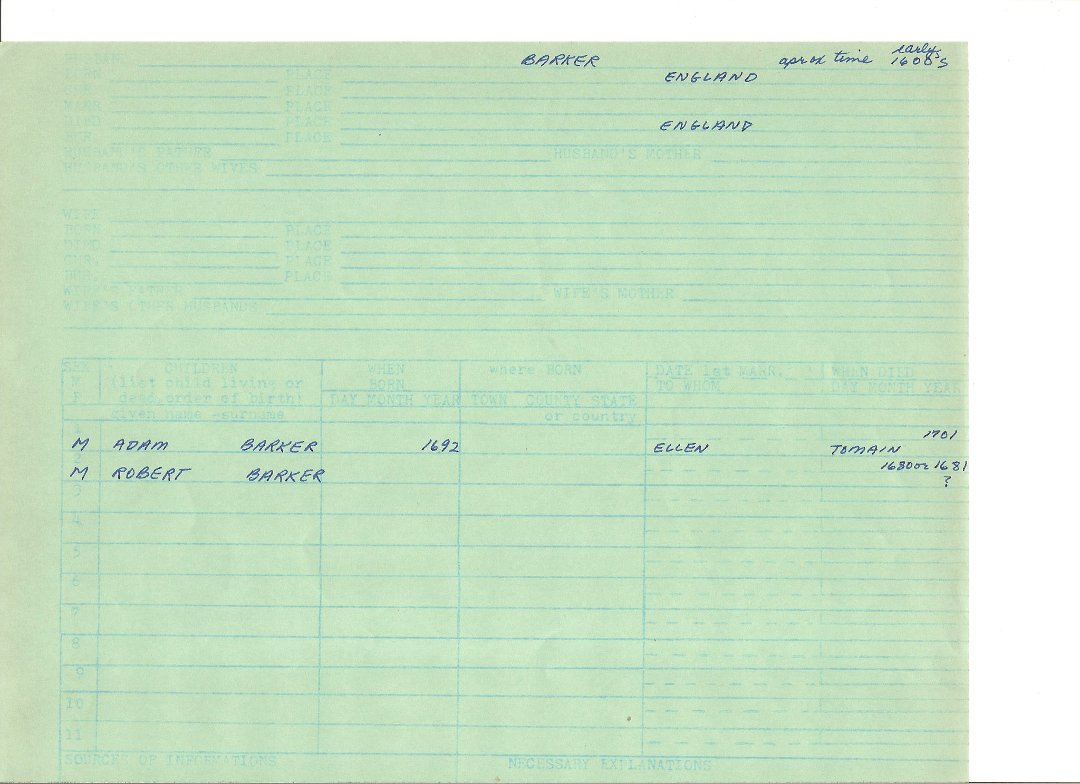 HUSBAND BARKER aprox time early 1600's
BORN PLACE ENGLAND
PLACE
MARR PLACE
DIED PLACE ENGLAND
PLACE
HUSBAND'S FATHER HUSBAND'S MOTHER
HUSBAND'S OTHER WIVES
WIFE
BORN PLACE
DIED PLACE
CHR. PLACE
BUR. PLACE
WIFE'S FATHER WIFE'S MOTHER
WIFE'S OTHER HUSBANDS
SEX CHILDREN WHEN where BORN DATE 1st MARR. WHEN DIED
M (list child living or BORN TO WHOM DAY MONTH YEAR
F dead order of birth) DAY MONTH YEAR TOWN COUNTY STATE
given name -surname or country
1 1701
M ADAM BARKER 1692 ELLEN TOMAIN
2 1680 or 1681
M ROBERT BARKER ?
3
4
5
6
7
8
9
10
11
SOURCES OF INFORMATIONS NECESSARY EXPLANATIONS